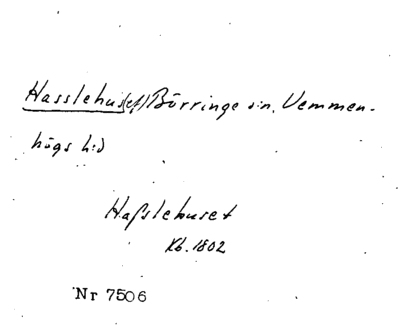 Hasslehus(et) Börringe sn. Vemmen-
högs hd
Haßlehuset
Kb. 1802
Nr 7506